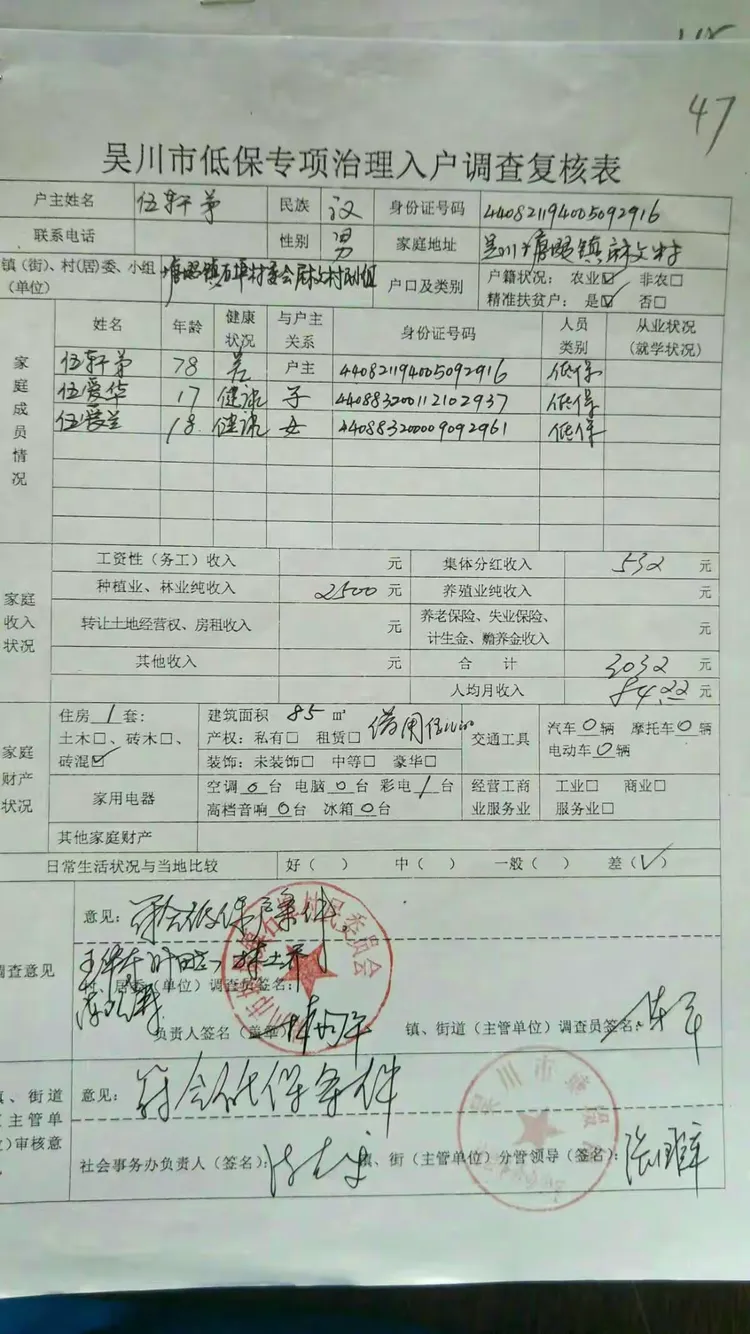 47
吴川市低保专项治理入户调查复核表
户主姓名 伍轩弟 民族 汉 身份证号码 440821194005092916
联系电话 性别 男 家庭地址 吴川塘㙍镇麻文村
镇(街)、村(居)委、小组(单位) 户口及类别 户籍状况: 农业☑ 非农□
精准扶贫户: 是☑ 否□
家庭成员情况
姓名 年龄 健康状况 与户主关系 身份证号码 人员类别 从业状况(就学状况)
伍轩弟 78 差 户主 440821194005092916 低保
伍爱华 17 健康 子 440883200112102937 低保
伍爱兰 18 健康 女 440883200009092961 低保
家庭收入状况
工资性(务工)收入 元 集体分红收入 532 元
种植业、林业纯收入 2500 元 养殖业纯收入 元
转让土地经营权、房租收入 元 养老保险、失业保险、计生金、赡养金收入 元
其他收入 元 合 计 3032 元
人均月收入 84.22 元
家庭财产状况
住房 1 套: 建筑面积 85 ㎡
土木□、砖木□、 产权: 私有□ 租赁□ 借用 交通工具 汽车 0 辆 摩托车 0 辆
砖混☑ 装饰: 未装饰□ 中等□ 豪华□ 电动车 0 辆
家用电器 空调 0 台 电脑 0 台 彩电 1 台 经营工商业服务业 工业□ 商业□
高档音响 0 台 冰箱 0 台 服务业□
其他家庭财产
日常生活状况与当地比较 好( ) 中( ) 一般( ) 差(√)
调查意见
意见: 符合低保户条件
居委(单位)调查员签名:
负责人签名(盖章) 镇、街道(主管单位)调查员签名:
镇、街道(主管单位)审核意
意见: 符合低保条件
社会事务办负责人(签名): 镇、街(主管单位)分管领导(签名):